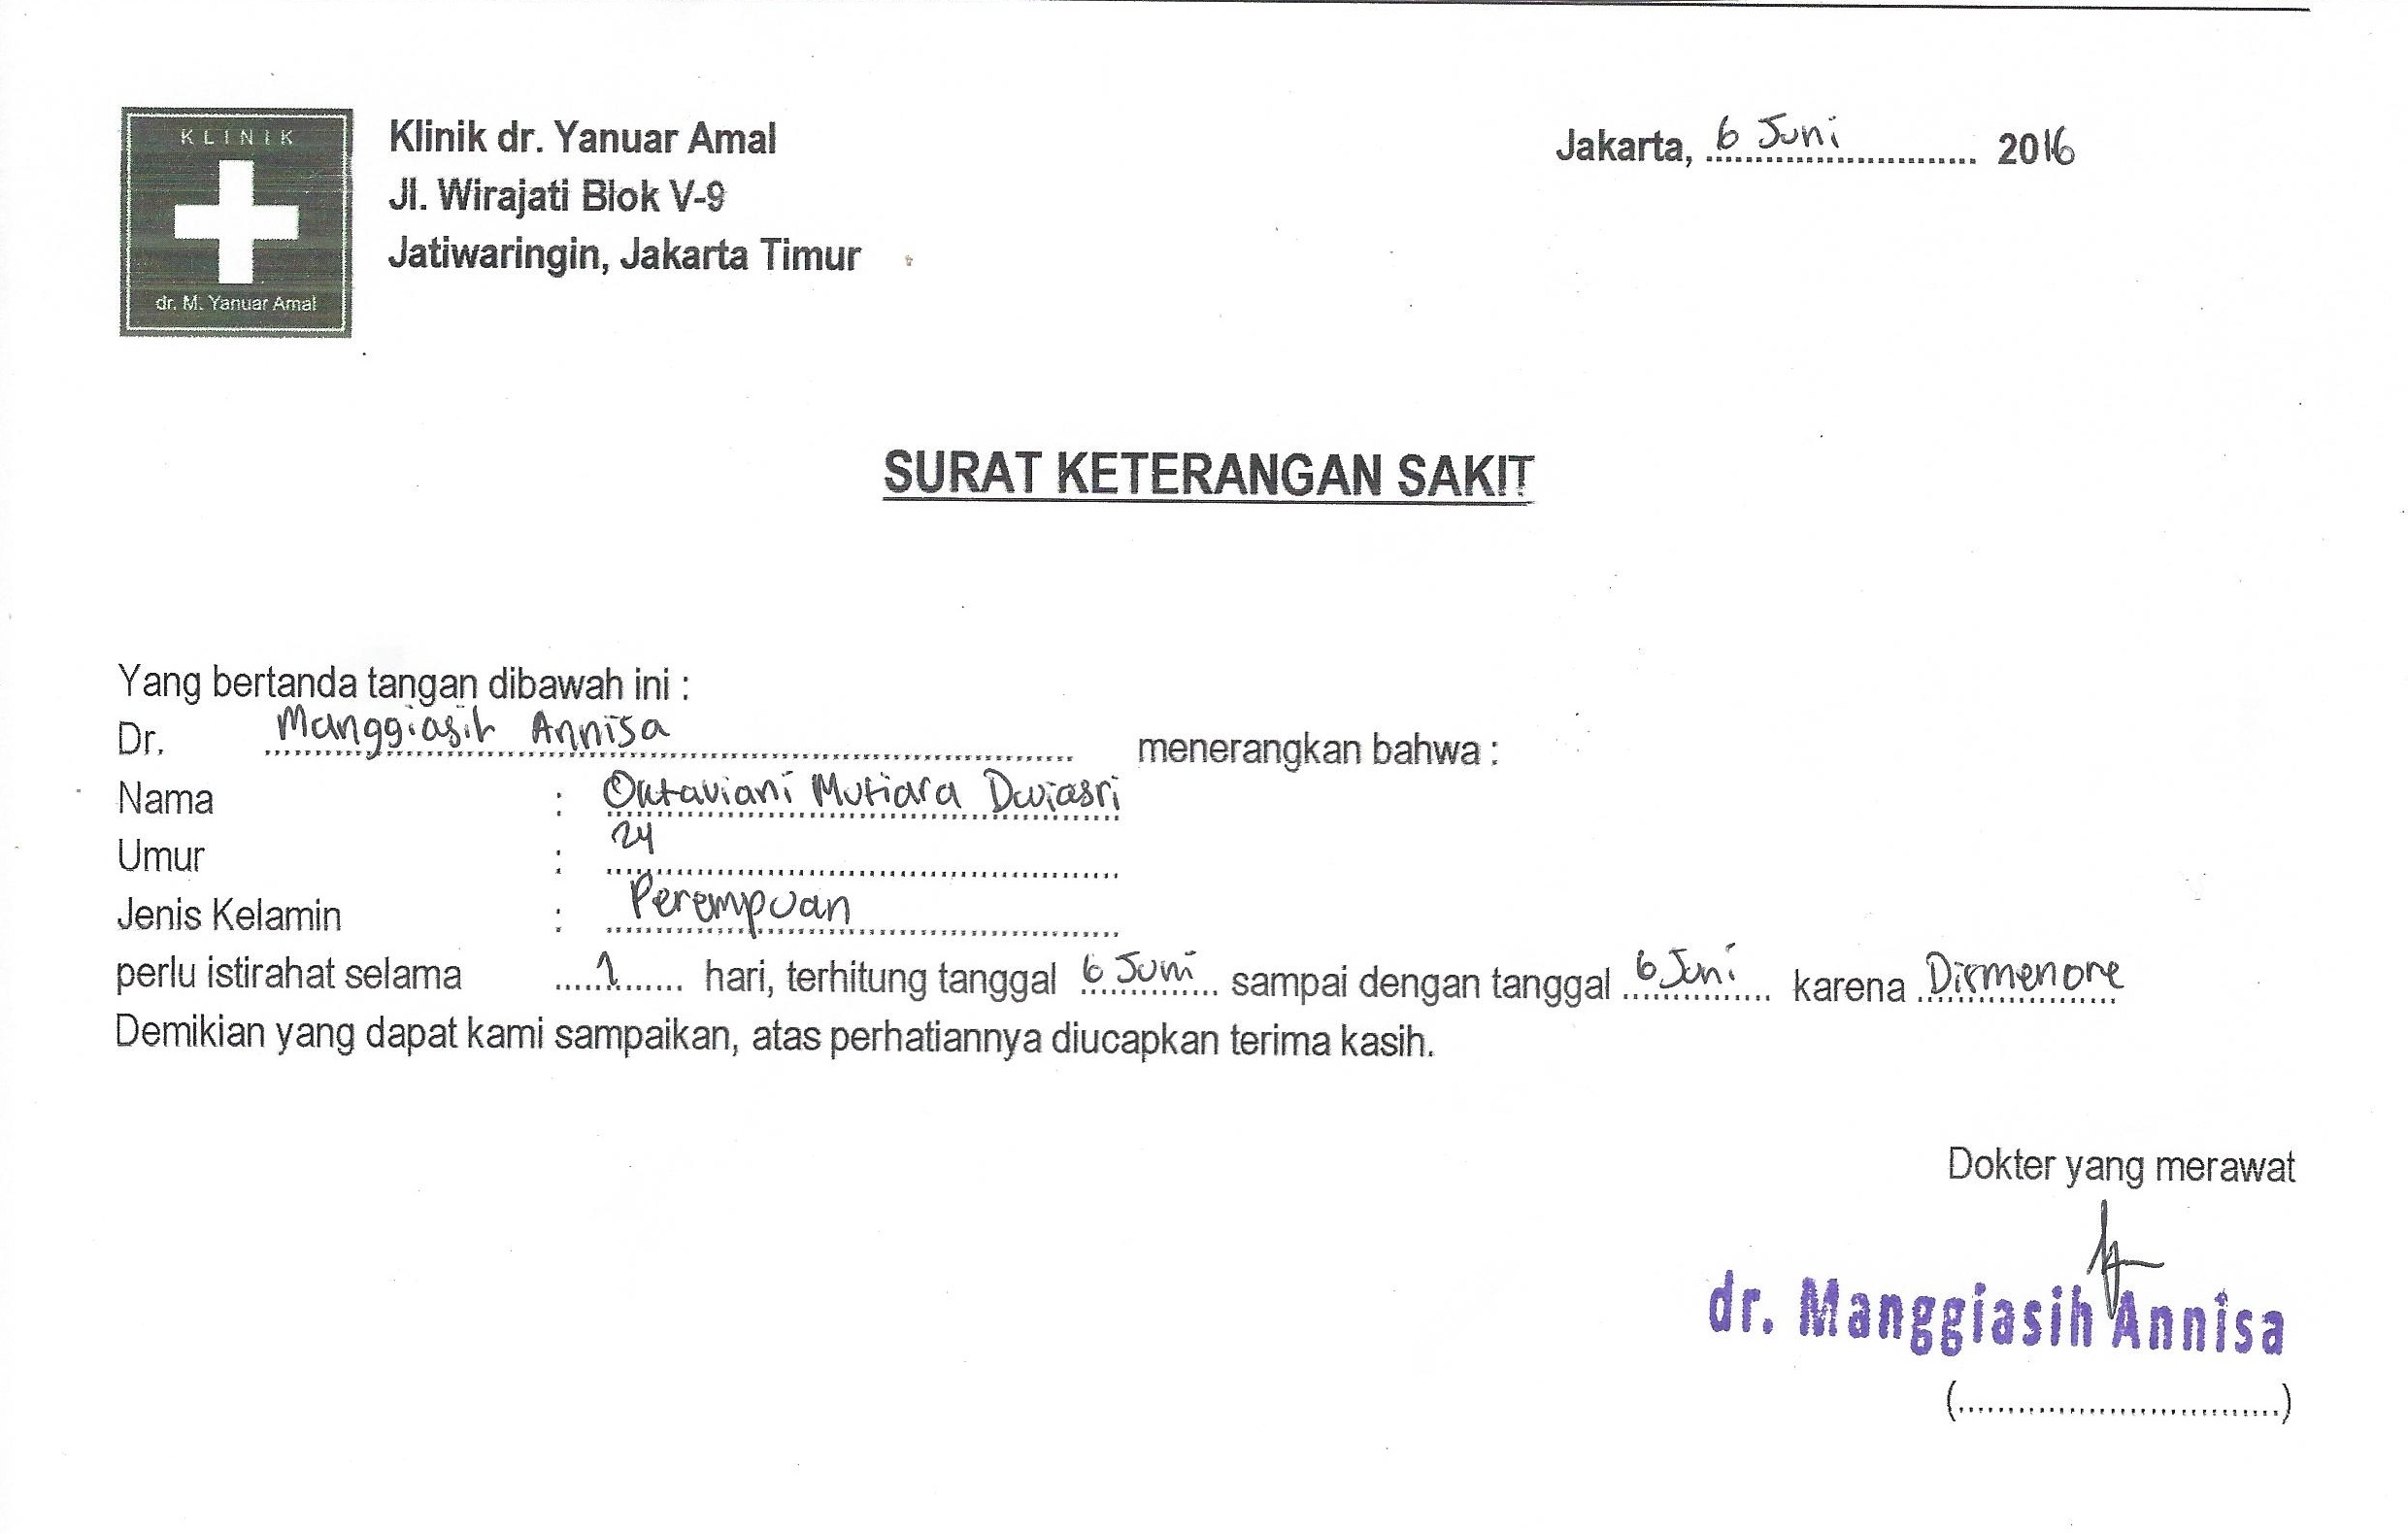 KLINIK
dr. M. Yanuar Amal
Klinik dr. Yanuar Amal
Jl. Wirajati Blok V-9
Jatiwaringin, Jakarta Timur
Jakarta, 6 Juni 2016
SURAT KETERANGAN SAKIT
Yang bertanda tangan dibawah ini :
Dr. Manggiasih Annisa menerangkan bahwa :
Nama : Oktaviani Mutiara Dwiasri
Umur : 24
Jenis Kelamin : Perempuan
perlu istirahat selama 1 hari, terhitung tanggal 6 Juni sampai dengan tanggal 6 Juni karena Dismenore
Demikian yang dapat kami sampaikan, atas perhatiannya diucapkan terima kasih.
Dokter yang merawat
dr. Manggiasih Annisa
(................................)